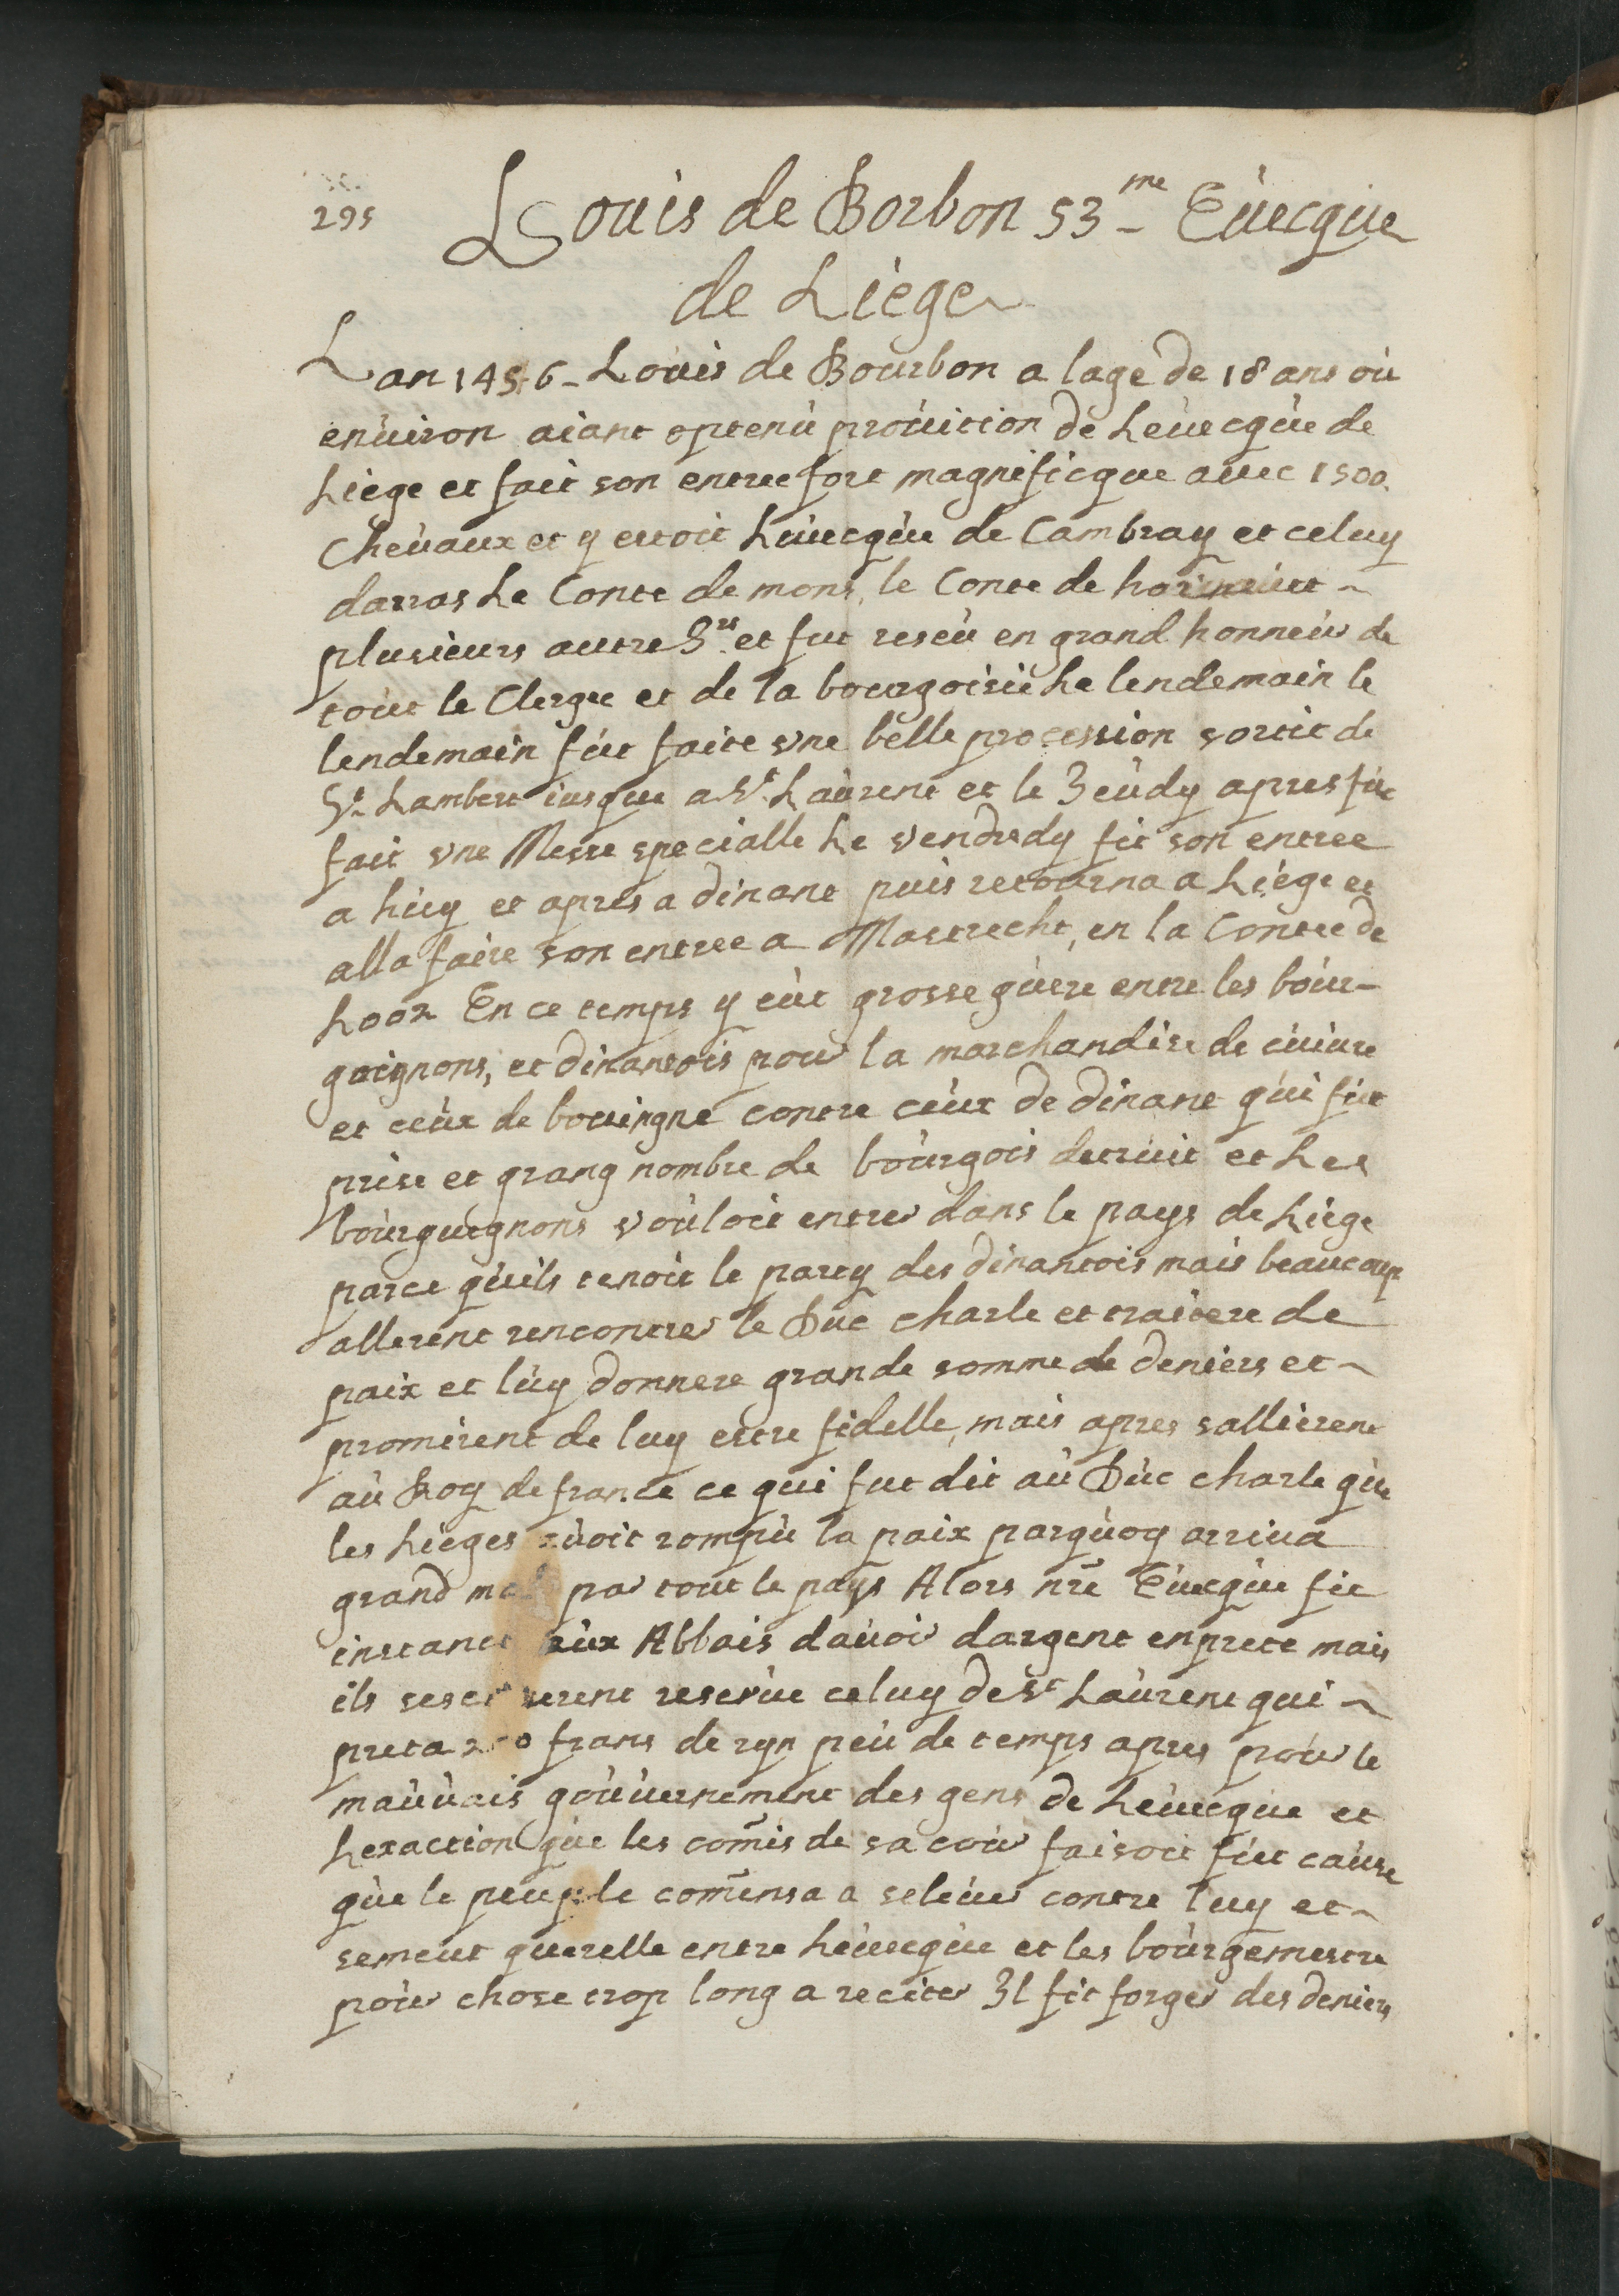 295
Louis de Borbon 53me Euecque
de Liege
Lan 1456 - Louis de Bourbon a lage de 18 ans ou
enuiron aiant optenu prouition de Leuecque de
Liege et fait son entree fort magnificque auec 1500
Cheuaux et y estoit Leuecque de Cambray et celuy
darras Le Conte de mons, le Conte de
plusieurs autre Srs et fut reseu en grand honneur de
tout le Clerge et de la bourgoisie Le lendemain le
lendemain fut faite vne belle procession sortit de
St Lambert iusque a St Laurent et le Jeudy apres fut
fait vne Messe specialle Le vendredy fit son entree
a huy et apres a dinant puis retourna a Liege et
alla faire son entree a Mastrecht, en la Contee de
Looz En ce temps y eut grosse guere entre les bour-
guignons, et dinantois pour la marchandise de cuiure
et ceux de bouuigne contre ceux de dinant qui fut
prise et grang nombre de bourgois detruit et Les
bourguignons vouloit entrer dans le pays de Liege
parce quils tenoit le party des dinantois mais beaucoup
allerent rencontrer le Duc charle et traitere de
paix et luy donnere grande somme de deniers et
promirent de luy estre fidelle, mais apres sallierent
au Roy de france ce qui fut dit au Duc charle que
les Lieges auoit rompu la paix parquoy arriua
grand mal par tout le pays Alors nre Euecque fit
instance aux Abbais dauoir dargent enprete mais
ils reserue celuy de St Laurent qui
preta frans de ryn peu de temps apres pour le
mauuais gouuernement des gens de Leuecque et
Lexaction que les comis de sa cour faisoit fut cause
que le peuple comensa a seleuer contre luy et
semeut querelle entre Leuecque et les bourgemestre
pour chose trop long a reciter Il fit forger des deniers